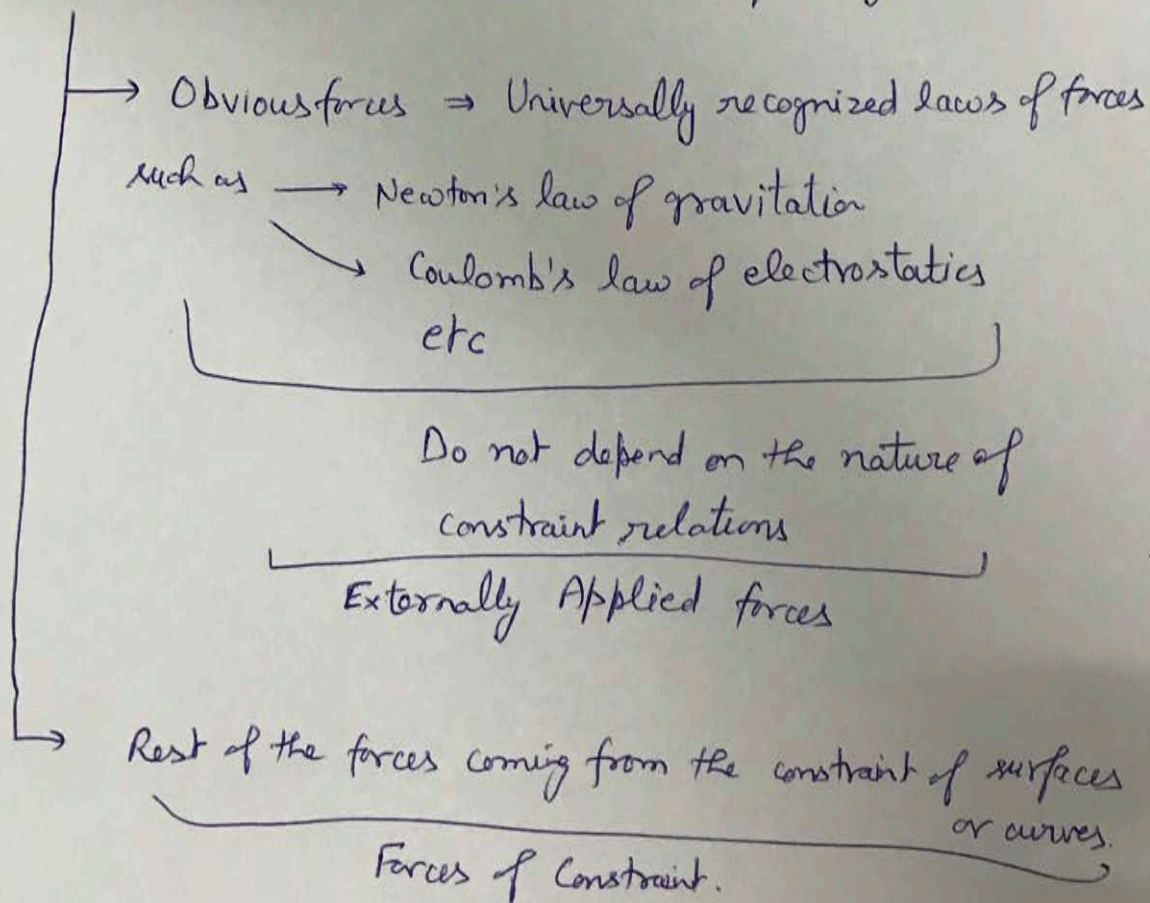 Obvious forces ⇒ Universally recognized laws of forces
such as → Newton's law of gravitation
→ Coulomb's law of electrostatics
etc
Do not depend on the nature of
constraint relations
Externally Applied forces
Rest of the forces coming from the constraint of surfaces
or curves.
Forces of Constraint.